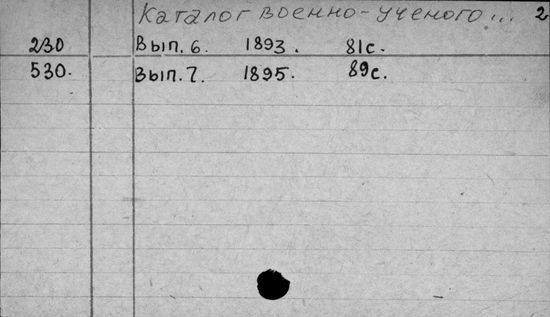 Каталог военно-ученого... 2
230 Вып. 6. 1893. 81с.
530. Вып. 7. 1895. 89с.